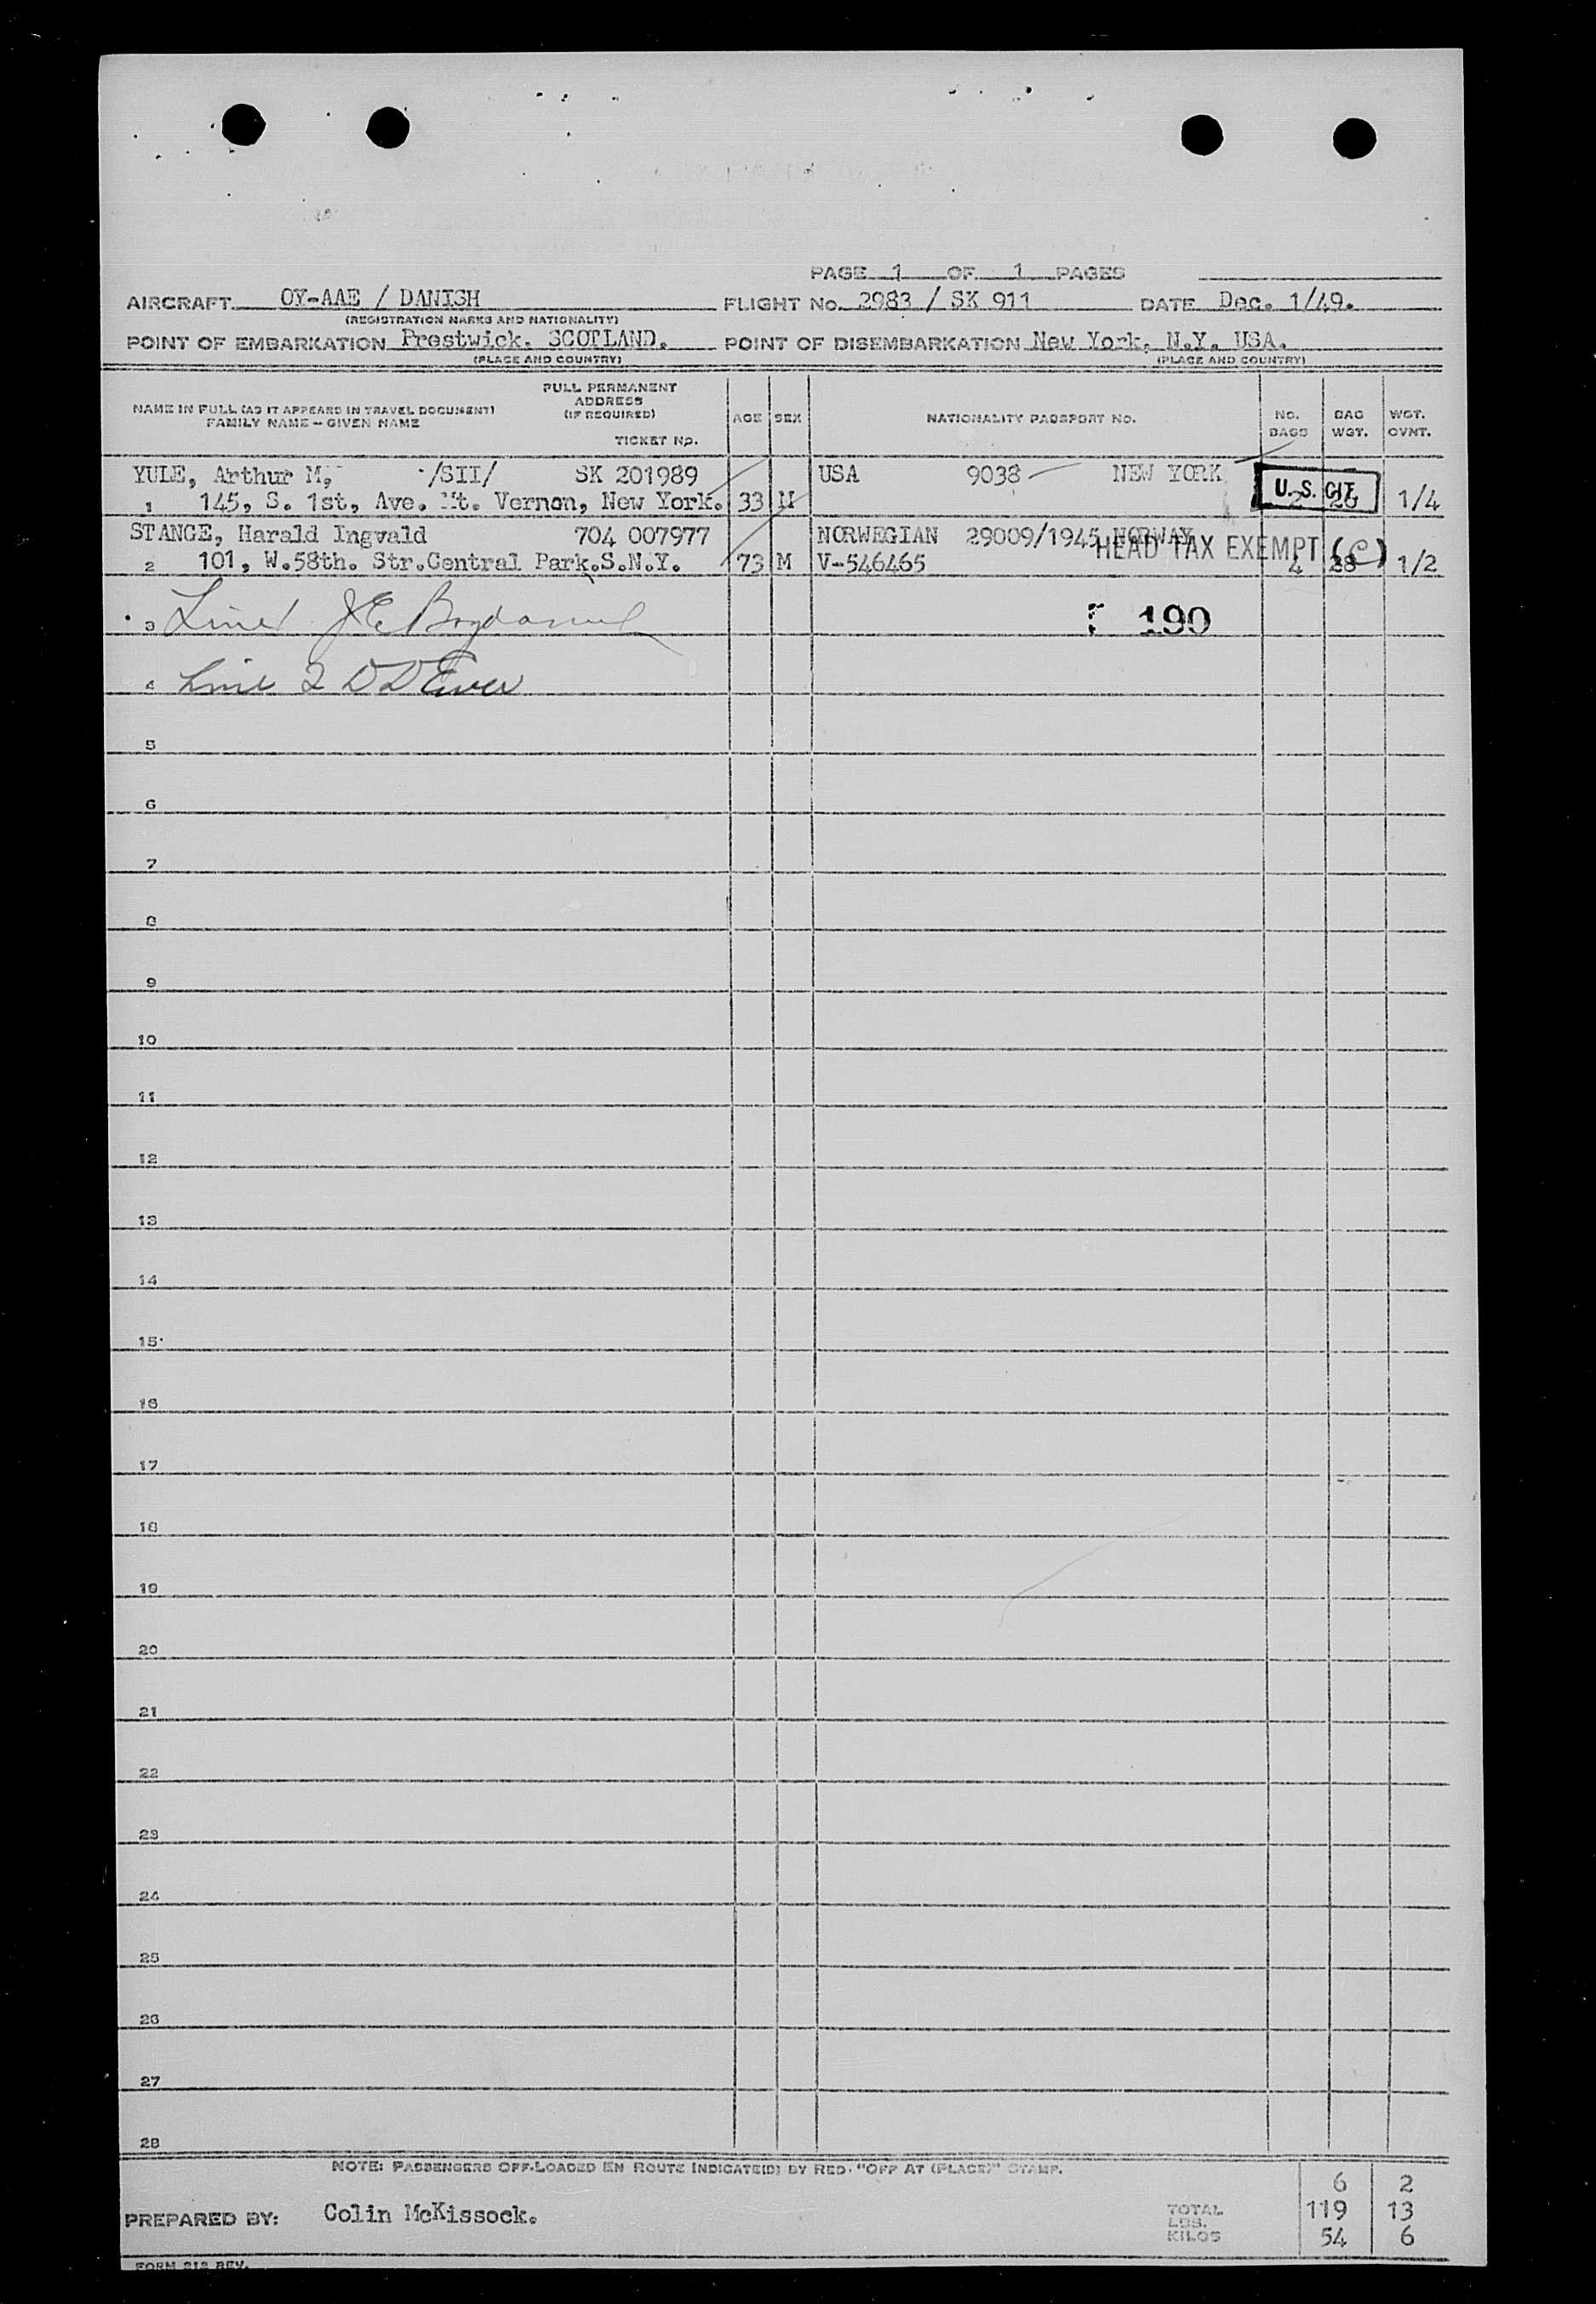 PAGE 1 OF 1 PAGES
AIRCRAFT OY-AAE / DANISH FLIGHT No. 2983 / SK 911 DATE Dec. 1/49.
(REGISTRATION MARKS AND NATIONALITY)
POINT OF EMBARKATION Prestwick. SCOTLAND. POINT OF DISEMBARKATION New York, N.Y. USA.
(PLACE AND COUNTRY) (PLACE AND COUNTRY)
NAME IN FULL (AS IT APPEARS IN TRAVEL DOCUMENT)
FAMILY NAME - GIVEN NAME
FULL PERMANENT
ADDRESS
(IF REQUIRED)
TICKET No.
AGE SEX NATIONALITY PASSPORT NO. NO. BAGS BAG WGT. WGT. OVNT.
YULE, Arthur M, /SII/ SK 201989 USA 9038 NEW YORK
U.S. CIT.
1 145, S. 1st, Ave. Mt. Vernon, New York. 33 M 2 26 1/4
STANGE, Harald Ingvald 704 007977 NORWEGIAN 29009/1945 NORWAY
HEAD TAX EXEMPT (C)
2 101, W.58th. Str.Central Park.S.N.Y. 73 M V-546465 4 28 1/2
3 Line 1 J E 190
4 Line 2 D D
5
6
7
8
9
10
11
12
13
14
15
16
17
18
19
20
21
22
23
24
25
26
27
28
NOTE: PASSENGERS OFF-LOADED EN ROUTE INDICATE(D) BY RED "OFF AT (PLACE)" STAMP.
6 2
PREPARED BY: Colin McKissock. TOTAL 119 13
LBS.
KILOS 54 6
FORM 212 REV.